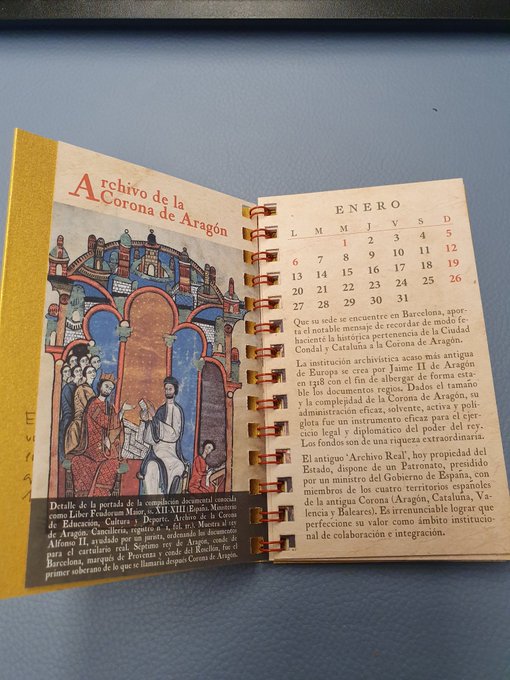 Archivo de la
Corona de Aragón
Detalle de la portada de la compilación documental conocida
como Liber Feudorum Maior, ss. XII-XIII (España. Ministerio
de Educación, Cultura y Deporte. Archivo de la Corona
de Aragón. Cancillería, registro nº 1, fol. 1r.). Muestra al rey
Alfonso II, ayudado por un jurista, ordenando los documentos
para el cartulario real. Séptimo rey de Aragón, conde de
Barcelona, marqués de Provenza y conde del Rosellón, fue el
primer soberano de lo que se llamaría después Corona de Aragón.
ENERO
L M M J V S D
1 2 3 4 5
6 7 8 9 10 11 12
13 14 15 16 17 18 19
20 21 22 23 24 25 26
27 28 29 30 31
Que su sede se encuentre en Barcelona, apor-
ta el notable mensaje de recordar de modo fe-
haciente la histórica pertenencia de la Ciudad
Condal y Cataluña a la Corona de Aragón.
La institución archivística acaso más antigua
de Europa se crea por Jaime II de Aragón
en 1318 con el fin de albergar de forma esta-
ble los documentos regios. Dados el tamaño
y la complejidad de la Corona de Aragón, su
administración eficaz, solvente, activa y polí-
glota fue un instrumento eficaz para el ejer-
cicio legal y diplomático del poder del rey.
Los fondos son de una riqueza extraordinaria.
El antiguo 'Archivo Real', hoy propiedad del
Estado, dispone de un Patronato, presidido
por un ministro del Gobierno de España, con
miembros de los cuatro territorios españoles
de la antigua Corona (Aragón, Cataluña, Va-
lencia y Baleares). Es irrenunciable lograr que
perfeccione su valor como ámbito institucio-
nal de colaboración e integración.